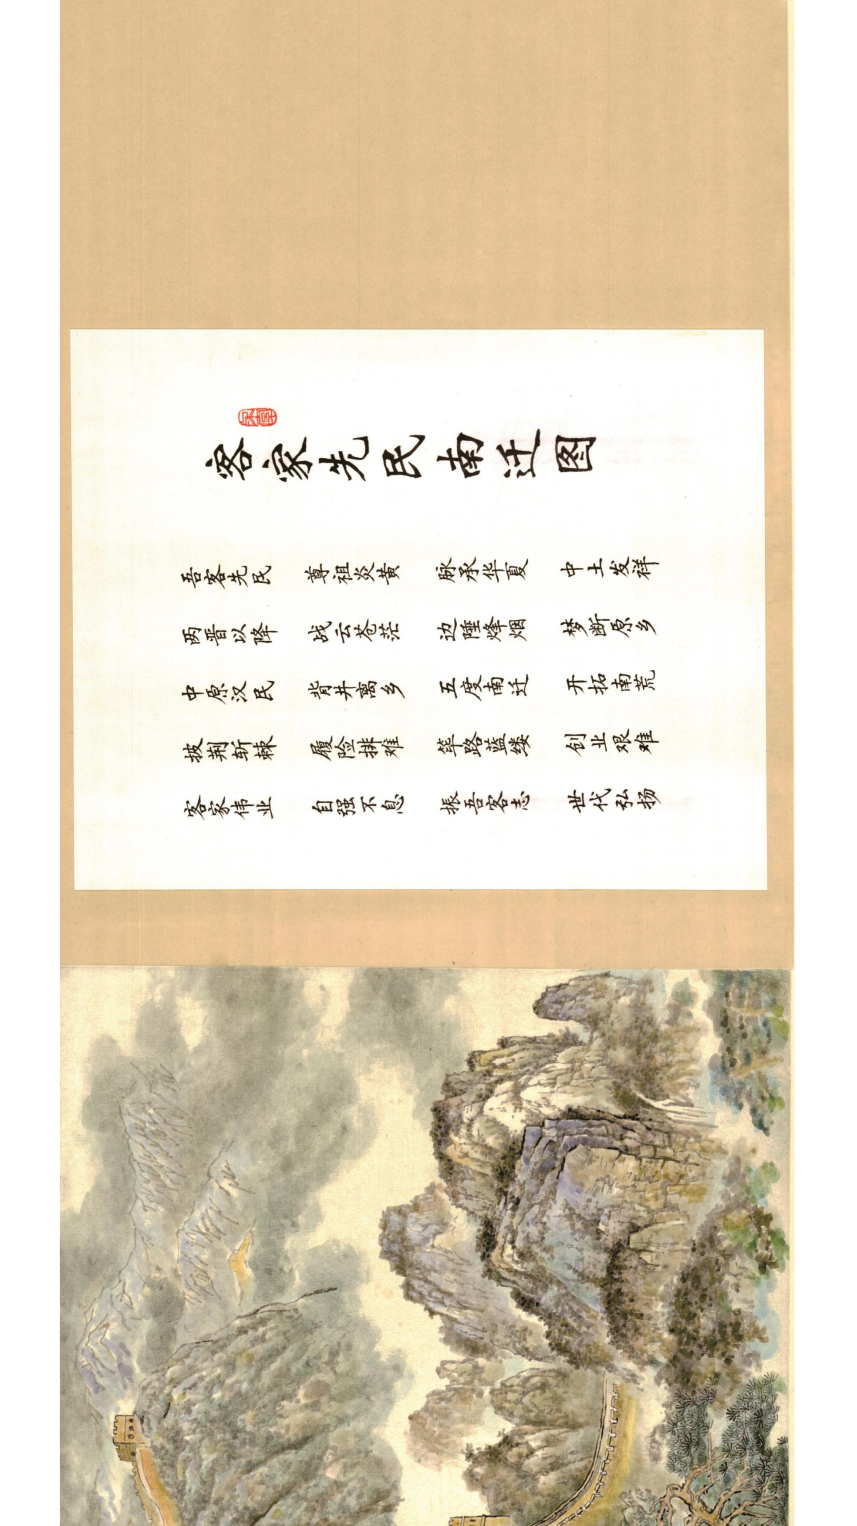 客家先民南迁图
吾客先民 尊祖炎黄 脉承华夏 中土发祥
两晋以降 战云苍茫 边陲烽烟 梦断原乡
中原汉民 背井离乡 五度南迁 开拓南荒
披荆斩棘 履险排难 筚路蓝缕 创业艰难
客家伟业 自强不息 振吾客志 世代弘扬